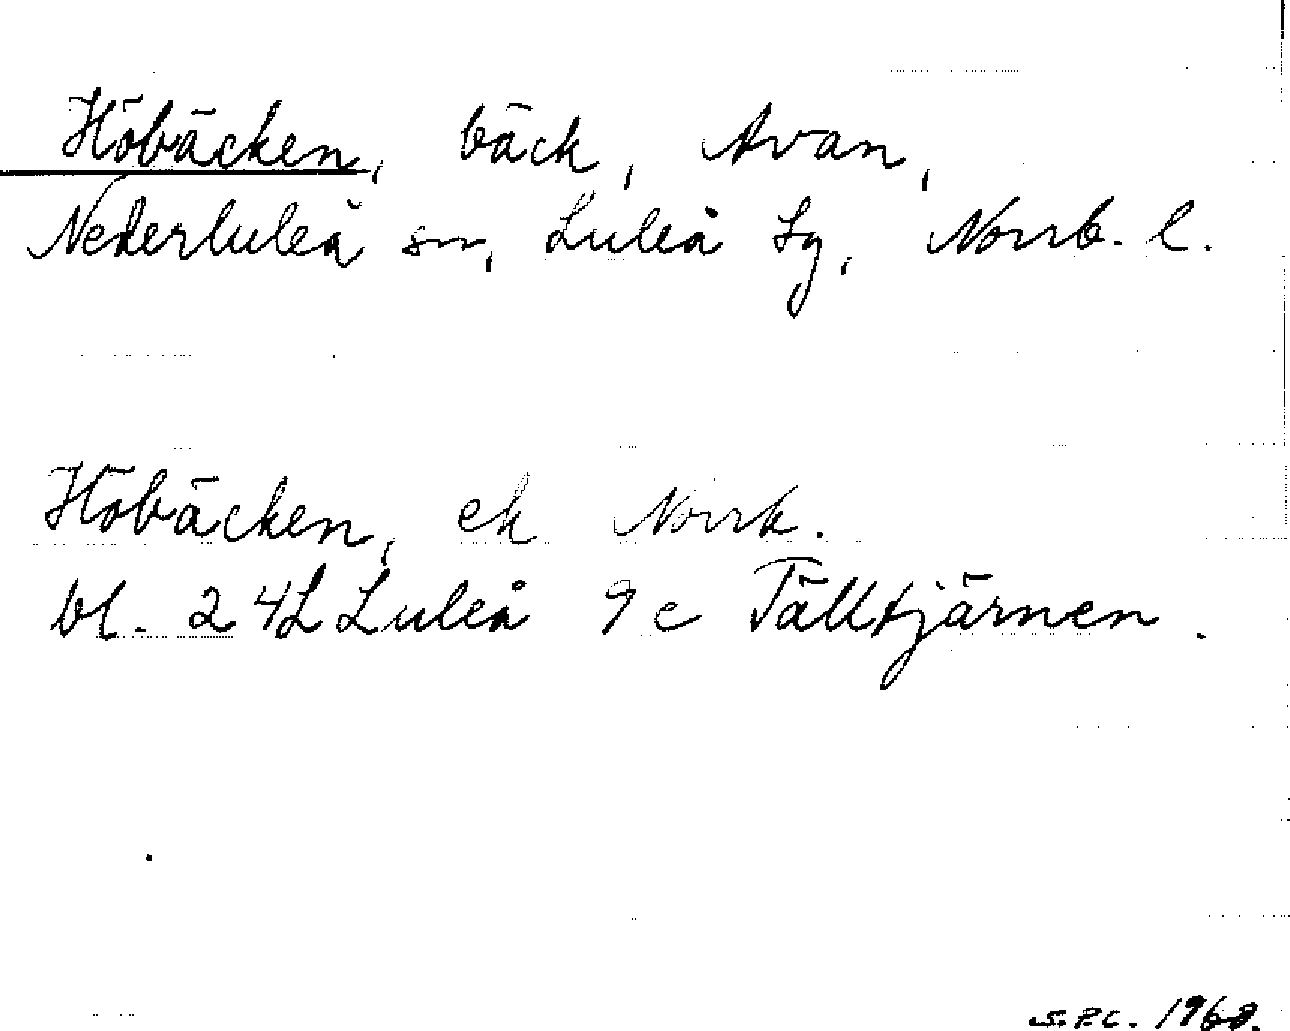 Höbäcken, bäck, Avan,
Nederluleå sn, Luleå tg, Norrb. l.
Höbäcken, ek Norrb.
bl. 24L Luleå 9c Tälltjärnen.
S.P.C. 1968.